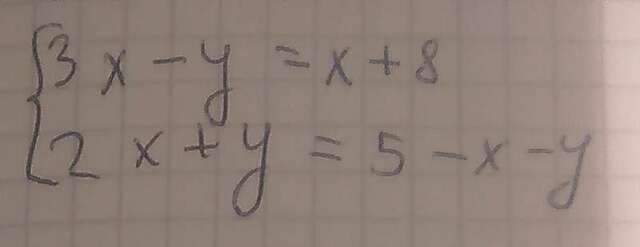 3x - y = x + 8
2x + y = 5 - x - y